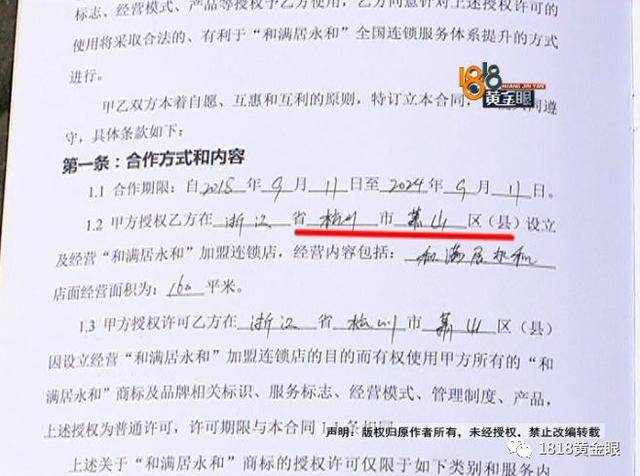 标志、经营模式、产品等授权予乙方使用，乙方同意针对上述授权许可的
使用将采取合法的、有利于“和满居永和”全国连锁服务体系提升的方式
进行。
1818
HUANG JIN YAN
黄金眼
甲乙双方本着自愿、互惠和互利的原则，特订立本合同，
同遵
守，具体条款如下：
第一条：合作方式和内容
1.1 合作期限：自2018年9月11日至2024年9月11日。
1.2 甲方授权乙方在 浙江 省 杭州 市 萧山 区（县）设立
及经营“和满居永和”加盟连锁店，经营内容包括： 和满居永和
店面经营面积为：160 平米。
1.3 甲方授权许可乙方在 浙江 省 杭州 市 萧山 区（县）
因设立经营“和满居永和”加盟连锁店的目的而有权使用甲方所有的“和
满居永和”商标及品牌相关标识、服务标志、经营模式、管理制度、产品，
上述授权为普通许可，许可期限与本合同1.1条相同
声明：版权归原作者所有，未经授权，禁止改编转载
1818黄金眼
上述关于“和满居永和”商标的授权许可仅限于如下类别和服务内